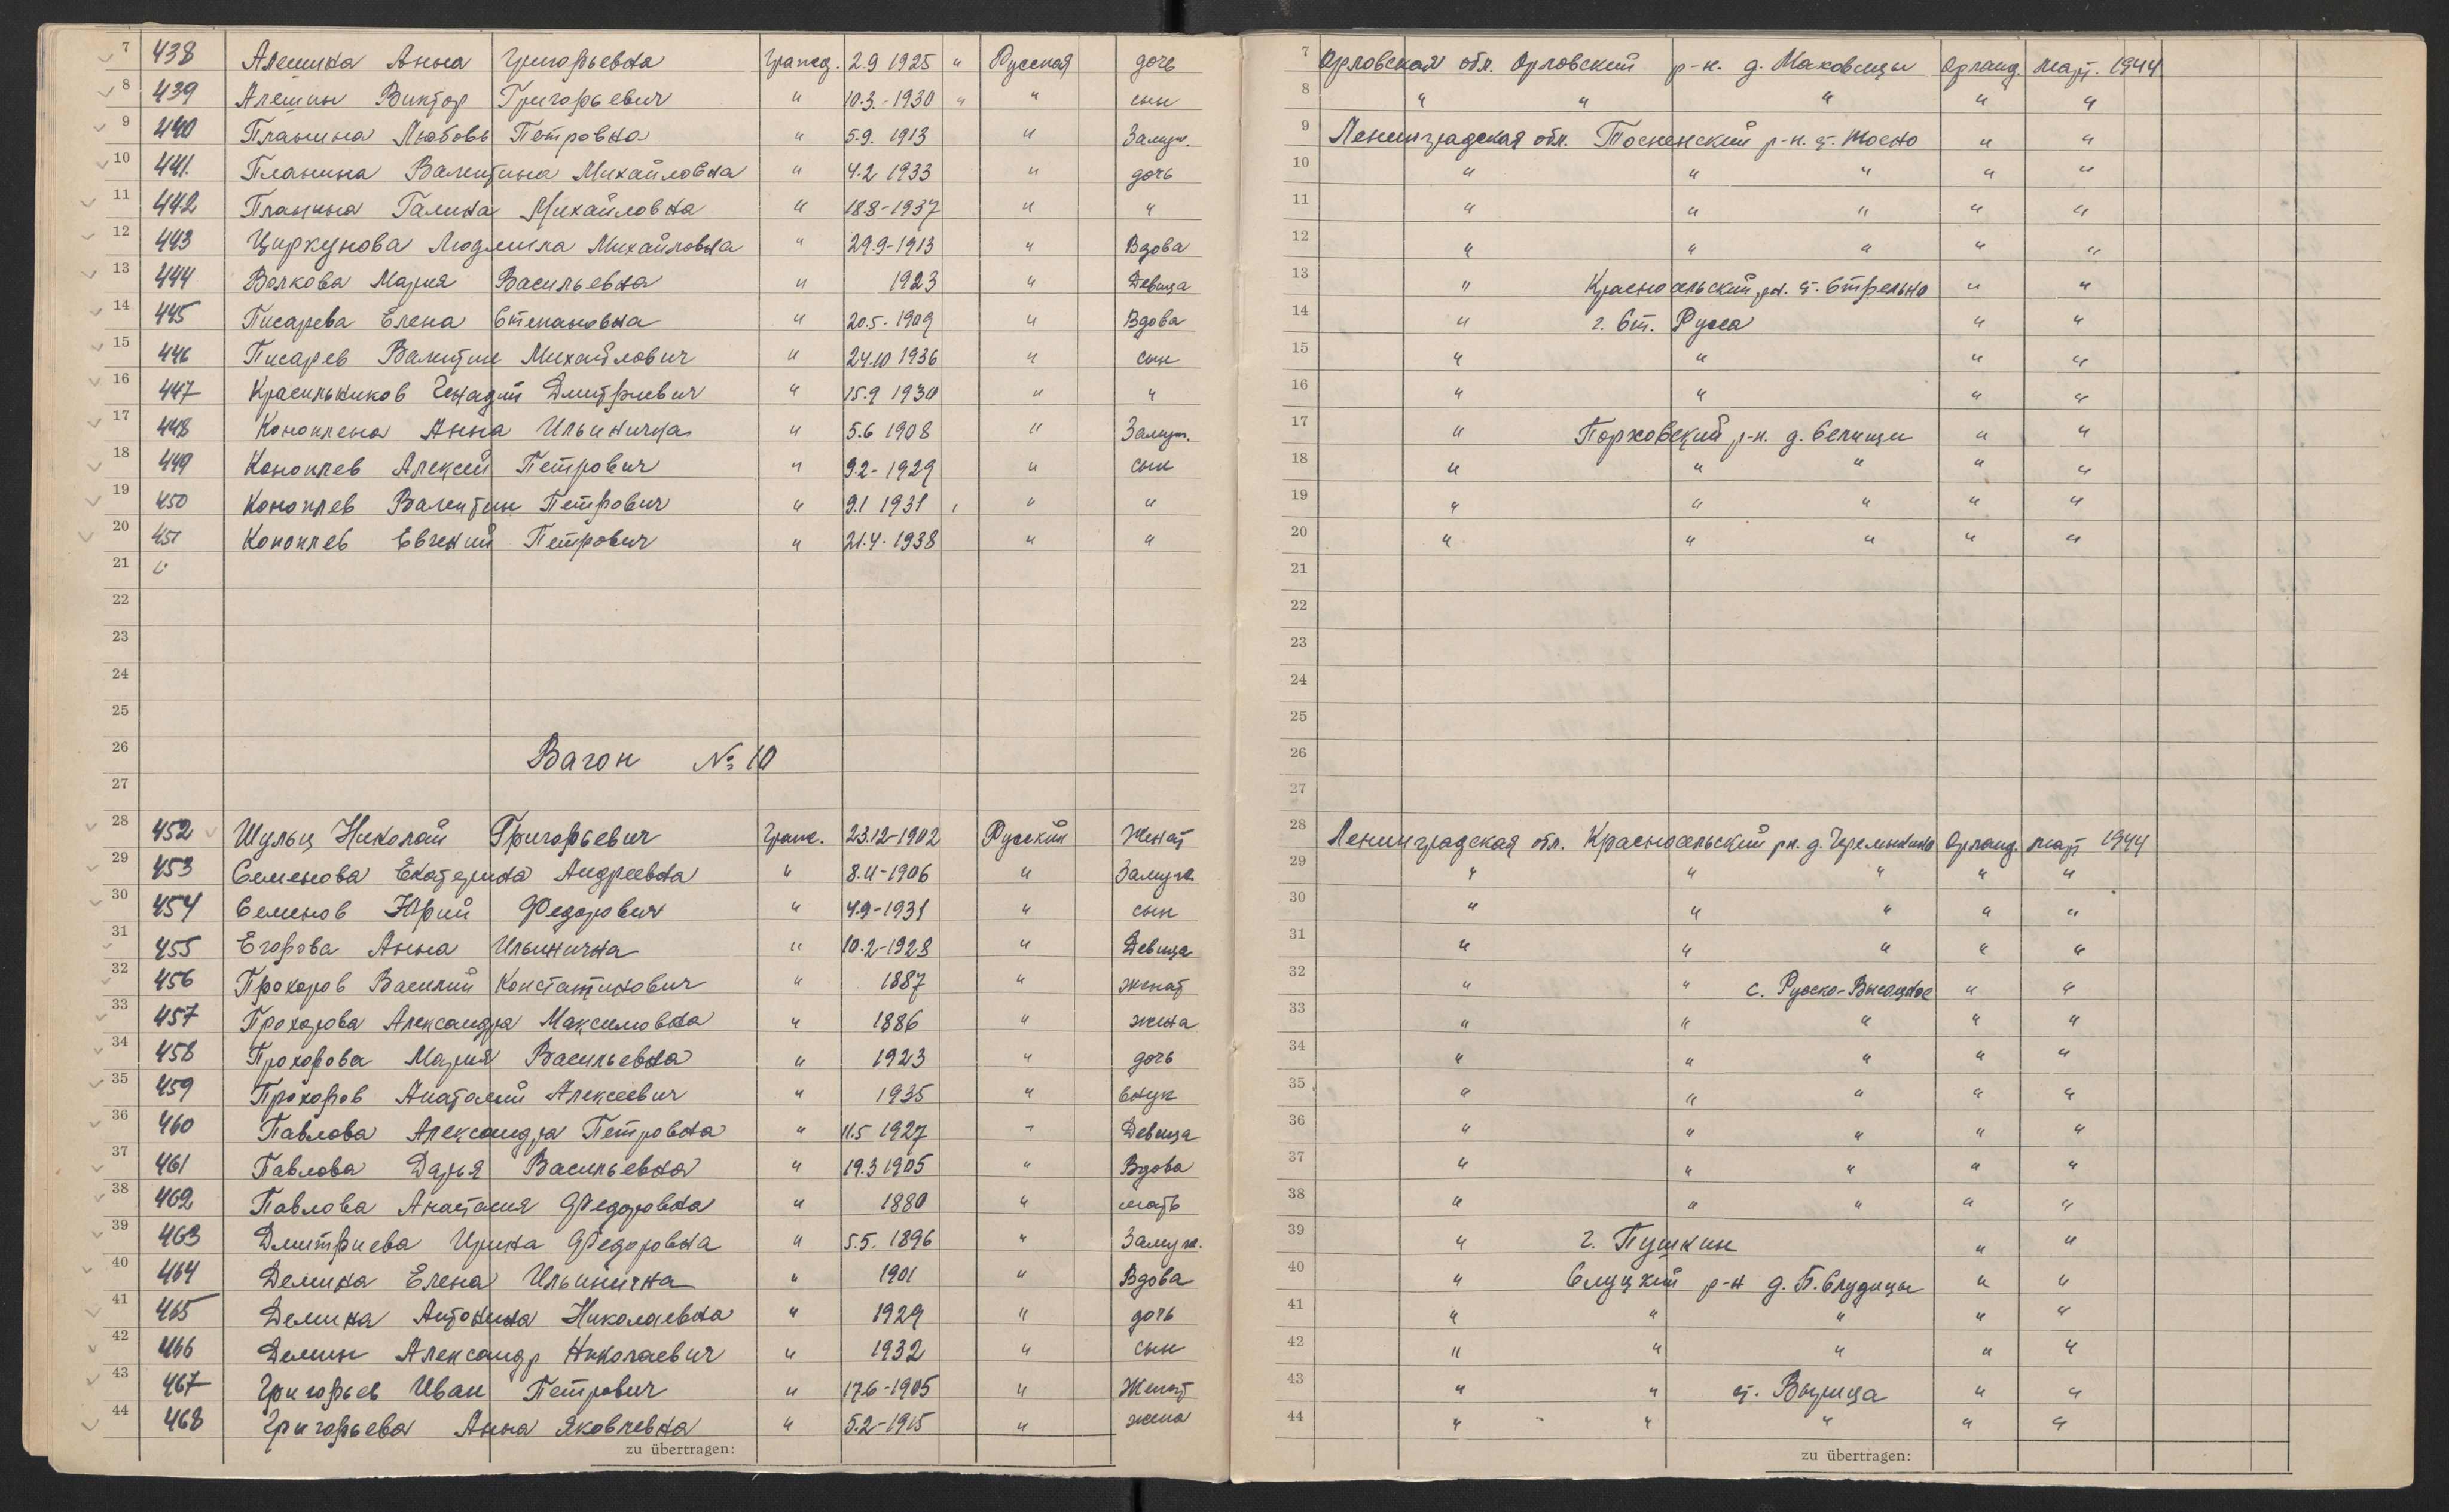 7 438 Алешина Анна Григорьевна гражд. 2.9 1925 " Русская дочь
8 439 Алешин Виктор Григорьевич " 10.3.-1930 " " сын
9 440 Планина Любовь Петровна " 5.9. 1913 " Замуж.
10 441. Планина Валентина Михайловна " 4.2 1933 " дочь
11 442 Планина Галина Михайловна " 18.8-1937 " "
12 443 Циркунова Людмила Михайловна " 29.9-1913 " Вдова
13 444 Волкова Мария Васильевна " 1923 " Девица
14 445 Писарева Елена Степановна " 20.5-1909 " Вдова
15 446 Писарев Валентин Михайлович " 24.10 1936 " сын
16 447 Красильников Генадий Дмитриевич " 15.9 1930 " "
17 448 Коноплева Анна Ильинична " 5.6 1908 " Замуж.
18 449 Коноплев Алексей Петрович " 9.2-1929 " сын
19 450 Коноплев Валентин Петрович " 9.1 1931 " "
20 451 Коноплев Евгений Петрович " 21.4.1938 " "
21
22
23
24
25
26 Вагон № 10
27
28 452 Шульц Николай Григорьевич Граж. 23.12-1902 Русский Женат
29 453 Семенова Екатерина Андреевна " 8.11-1906 " Замуж
30 454 Семенов Юрий Федорович " 4.9-1931 " сын
31 455 Егорова Анна Ильинична " 10.2-1928 " Девица
32 456 Прохоров Василий Констатинович " 1887 " женат
33 457 Прохорова Александра Максимовна " 1886 " жена
34 458 Прохорова Мария Васильевна " 1923 " дочь
35 459 Прохоров Анатолий Алексеевич " 1935 " внук
36 460 Павлова Александра Петровна " 11.5 1927 " Девица
37 461 Павлова Дарья Васильевна " 19.3 1905 " Вдова
38 462 Павлова Анастасия Федоровна " 1880 " мать
39 463 Дмитриева Ирина Федоровна " 5.5. 1896 " Замуж.
40 464 Демина Елена Ильинична " 1901 " Вдова
41 465 Демина Антонина Николаевна " 1929 " дочь
42 466 Демин Александр Николаевич " 1932 " сын
43 467 Григорьев Иван Петрович " 17.6-1905 " Женат
44 468 Григорьева Анна Яковлевна " 5.2-1915 " жена
zu übertragen:
7 Орловская обл. Орловский р-н. д. Маховицы Орланд. март. 1944
8 " " " " "
9 Ленинградская обл. Тосненский р-н. ст. Тосно " "
10 " " " " "
11 " " " " "
12 " " " " "
13 " Красносельский рн. ст. Стрельна " "
14 " г. Ст. Русса " "
15 " " " "
16 " " " "
17 " Порховский р-н. д. Селищи " "
18 " " " " "
19 " " " " "
20 " " " " "
21
22
23
24
25
26
27
28 Ленинградская обл. Красносельский рн. д. Черемыкино Орланд. март 1944
29 " " " " "
30 " " " " "
31 " " " " "
32 " " с. Русско-Высоцкое " "
33 " " " " "
34 " " " " "
35 " " " " "
36 " " " " "
37 " " " " "
38 " " " " "
39 " г. Пушкин " "
40 " Слуцкий р-н д. Б. Слудицы " "
41 " " " " "
42 " " " " "
43 " " ст. Вырица " "
44 " " " " "
zu übertragen: